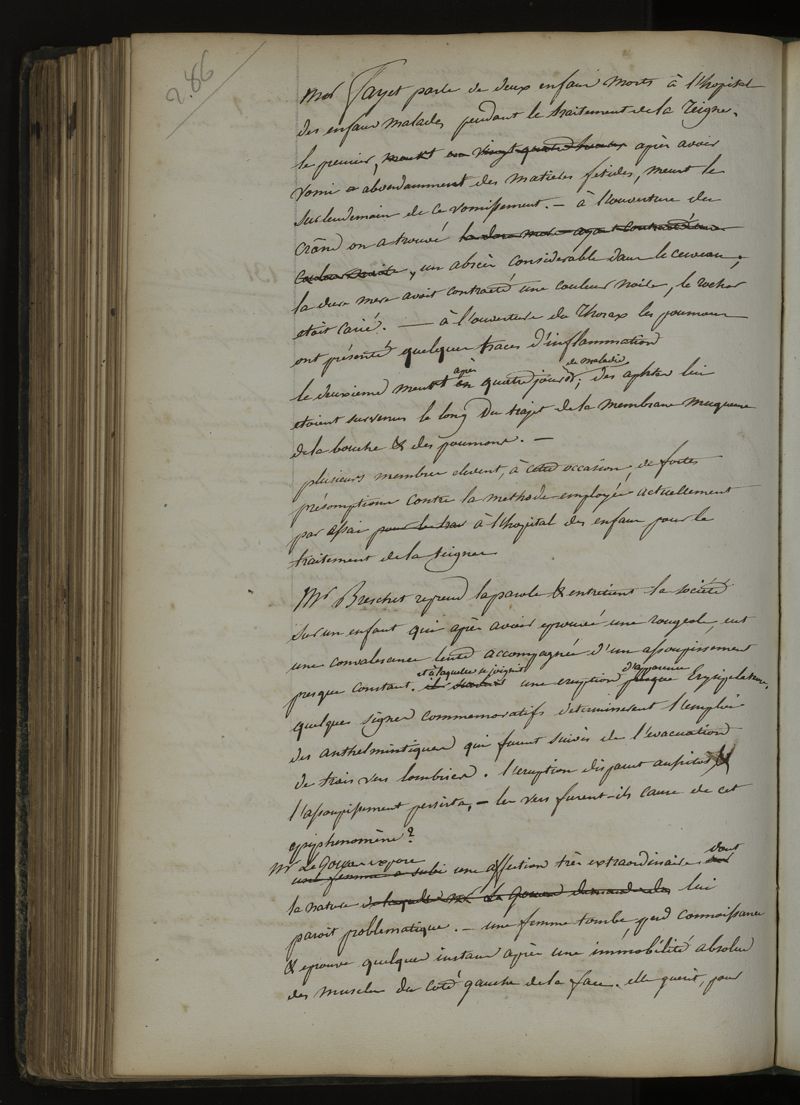 286
Mr Fayet parle de deux enfans morts à l'hopital
des enfans malades pendant le traitement de la Teigne.
le premier, meurt en vingt quatre heures après avoir
vomi abondamment des matières fetides, meurt le
surlendemain de ce vomissement. — à l'ouverture du
Crâne on a trouvé la dure mere ayant contracté une
couleur noire, un abscès considerable dans le cerveau;
la dure mere avoit contracté une couleur noire, le rocher
etoit carié. — à l'ouverture du Thorax les poumons
ont présenté quelques traces d'inflammation
le deuxieme meurt en après quatre jours de maladie; des aphtes lui
etoient survenus le long du trajet de la membrane muqueuse
de la bouche & des poumons. —
plusieurs membres elevent, à cette occasion, de fortes
présomptions contre la methode employée actuellement
par essai pour le trai à l'hopital des enfans pour le
traitement de la teigne
Mr Breschet reprend la parole & entretient la société
sur un enfant qui après avoir eprouvé une rougeole, eut
une convalescence lente accompagnée d'un assoupissement
presque constant. et à laquelle se joignit une eruption d'apparence presque Erysipelateuse.
quelques signes commemoratifs determinerent l'emploi
des anthelmintiques qui furent suivis de l'evacuation
de trois vers lombrics. l'eruption disparut aussitot &
l'assoupissement persista, — les vers furent-ils cause de cet
epiphenomène?
Mr Le Gouas expose
une femme a subi une affection très extraordinaire dont
la nature lui
paroit problematique. — une femme tombe, perd connoissance
& eprouve quelques instans après une immobilité absolue
des muscles du coté gauche de la face. elle guerit, pour